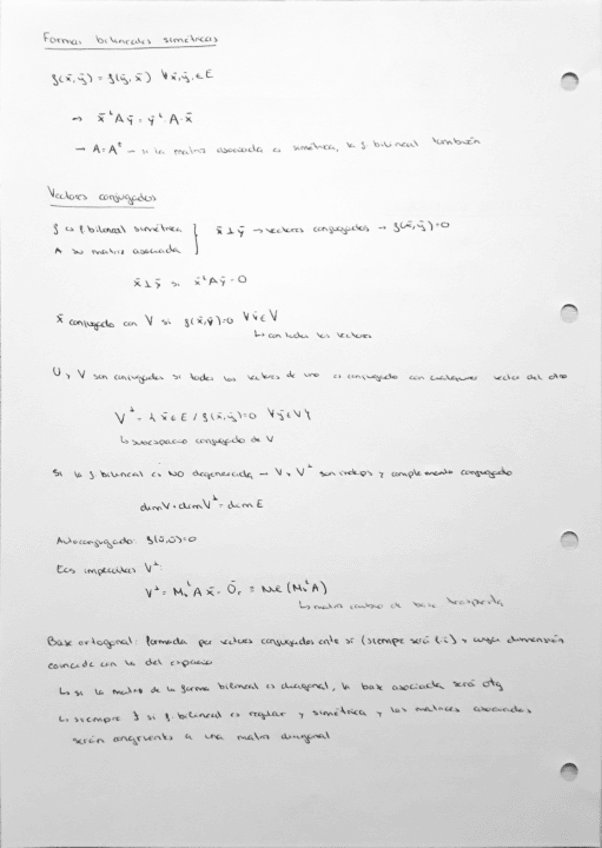 Formas bilineales simétricas
f(x̄,ȳ) = f(ȳ,x̄) ∀x̄,ȳ ∈ E
→ x̄ᵗAȳ = ȳᵗ·A·x̄
→ A=Aᵗ → si la matriz asociada es simétrica, la f. bilineal también
Vectores conjugados
f es f bilineal simétrica
A su matriz asociada } x̄⊥ȳ → vectores conjugados → f(x̄,ȳ)=0
x̄⊥ȳ si x̄ᵗAȳ=0
x̄ conjugado con V si f(x̄,v̄)=0 ∀v̄∈V
↳ con todos los vectores
U y V son conjugados si todos los vectores de uno es conjugado con cualquier vector del otro
V⊥ = { x̄∈E / f(x̄,ȳ)=0 ∀ȳ∈V}
↳ subespacio conjugado de V
Si la f. bilineal es NO degenerada → V y V⊥ son y complemento conjugado
dimV+dimV⊥=dimE
Autoconjugado: f(ū,ū)=0
Ecs implícitas V⊥:
V⊥ = Mᵥᵗ A x̄ = Ōᵣ = Nuc (MᵥᵗA)
↳ matriz cambio de base traspuesta
Base ortogonal: formada por vectores conjugados ente sí (siempre será l.i) y cuya dimensión
coincide con la del espacio
↳ si la matriz de la forma bilineal es diagonal, la base asociada será otg
↳ siempre ∃ si f. bilineal es regular y simétrica y las matrices asociadas
serán congruentes a una matriz diagonal